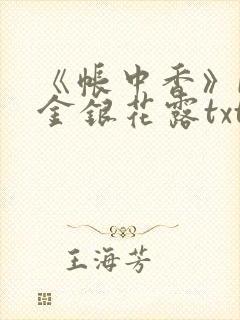 《帐中香》
金银花露txt
王海芳